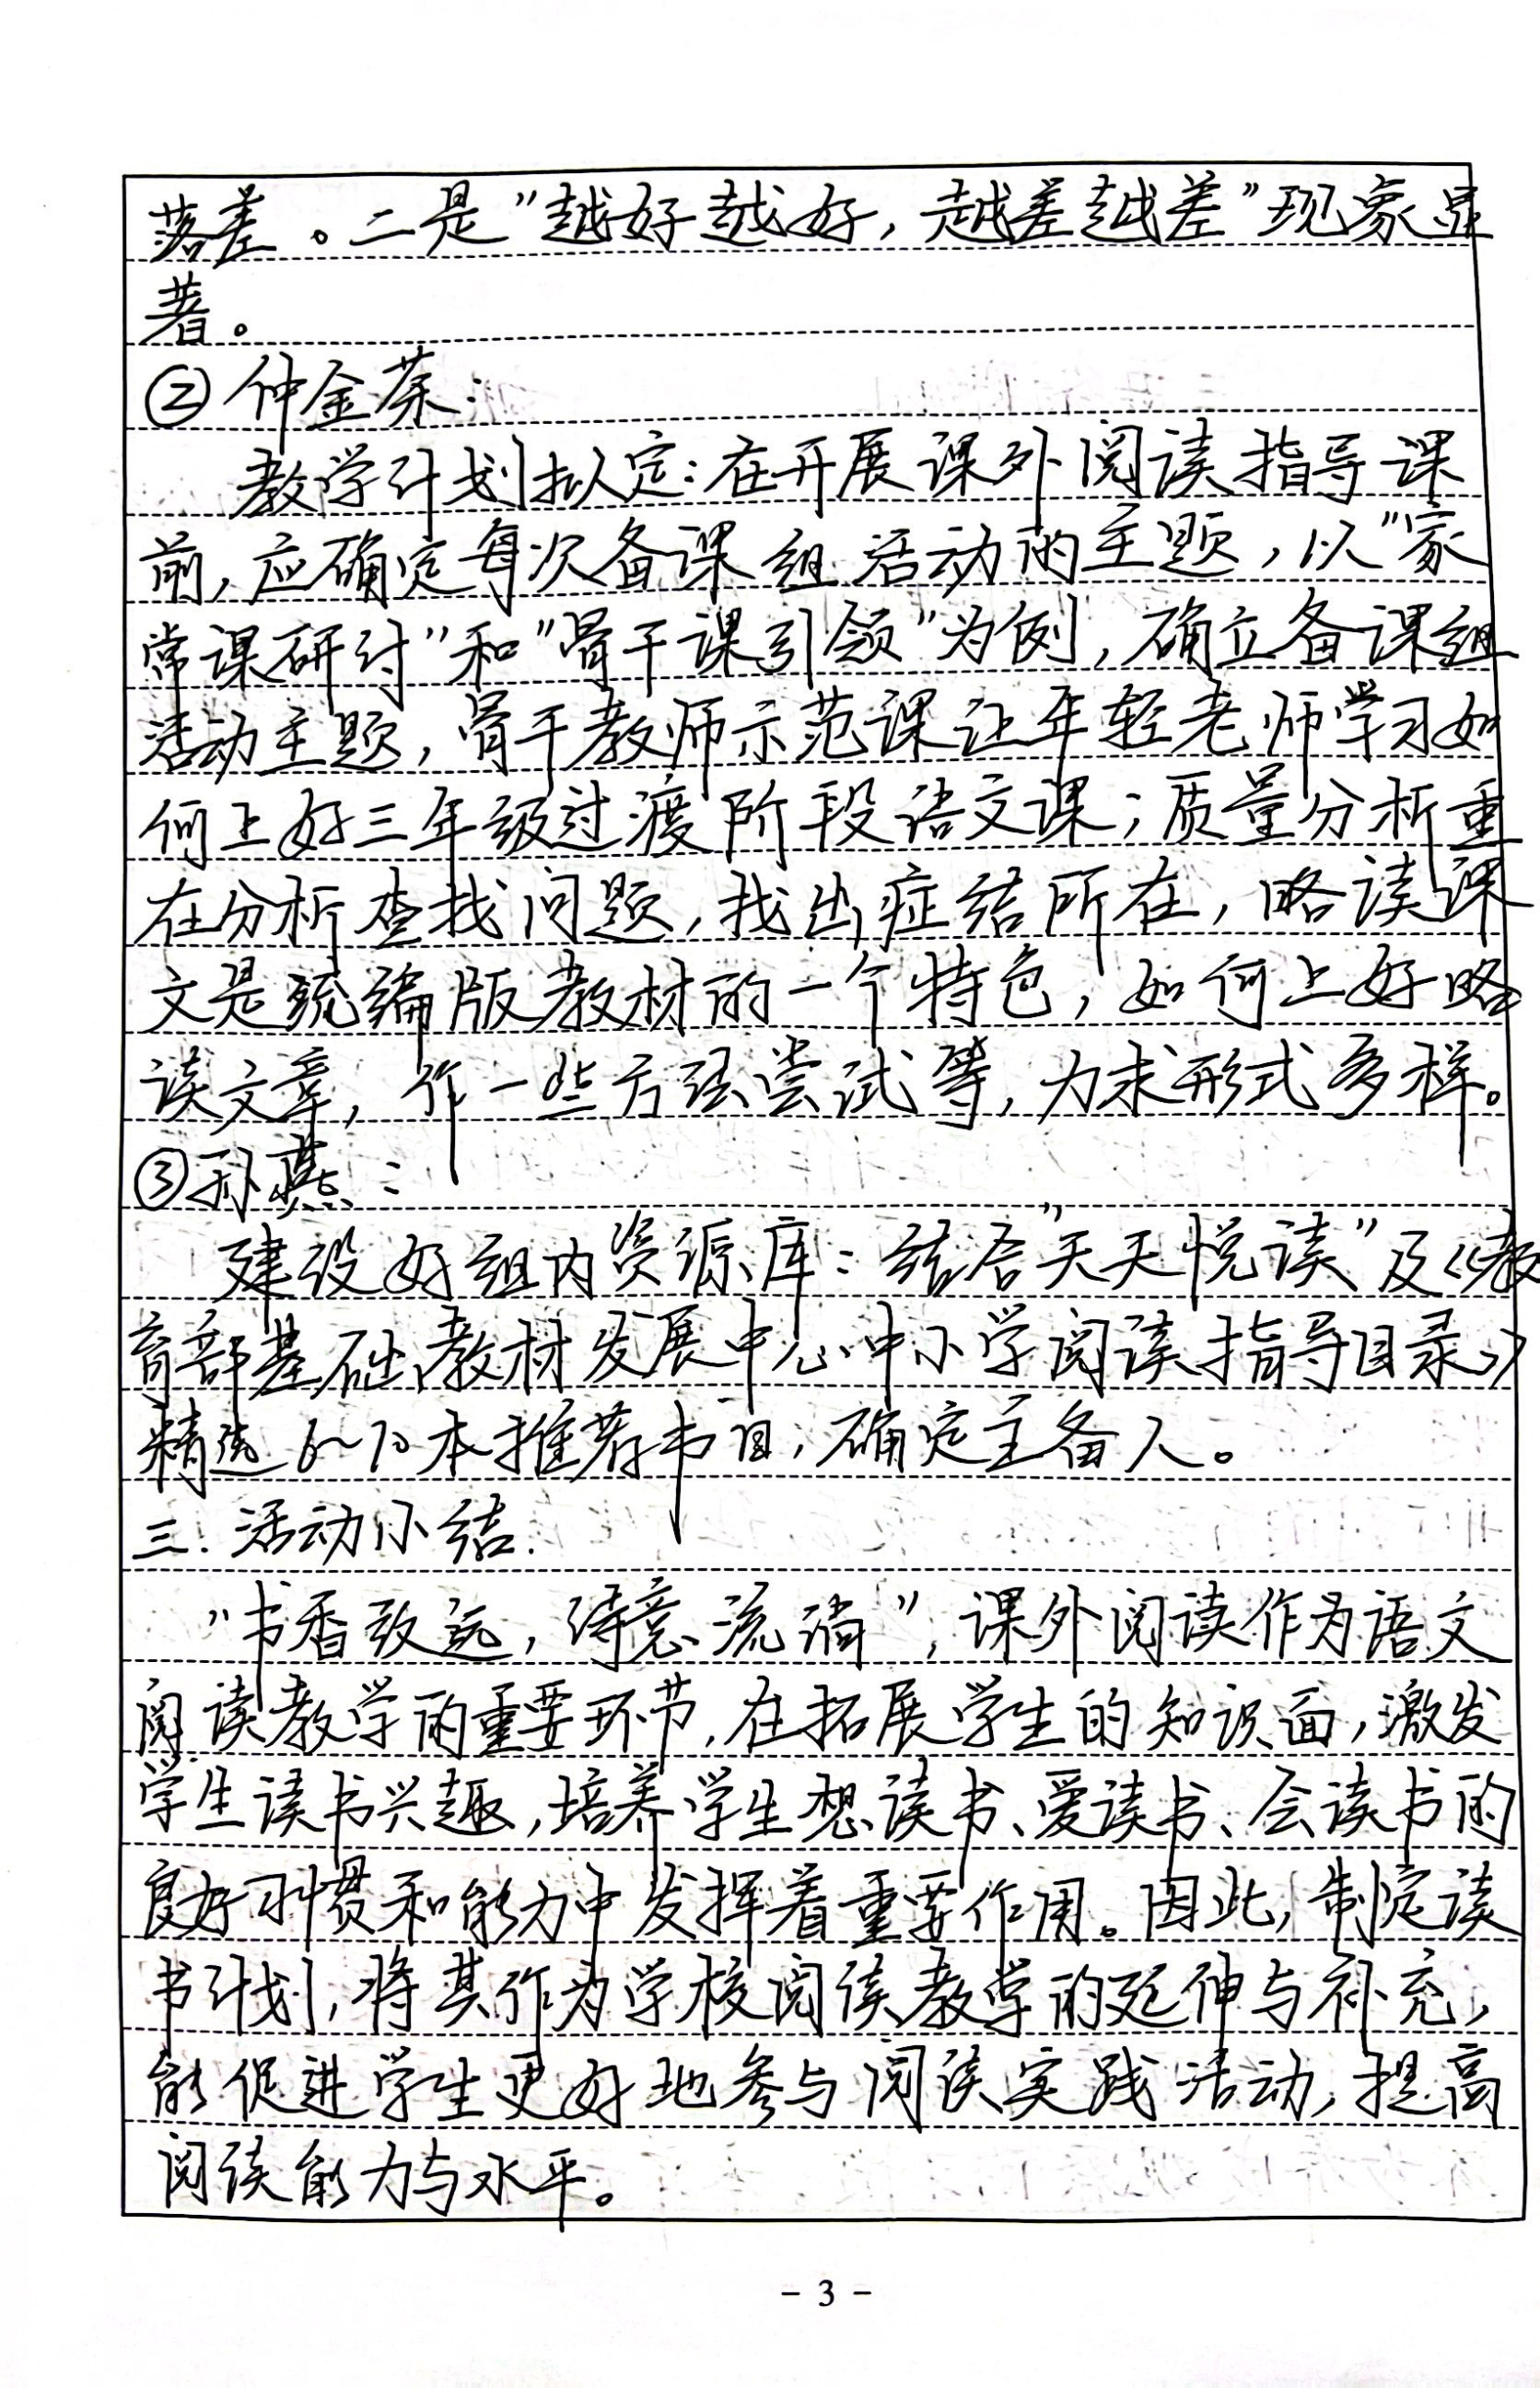 落差。二是"越好越好,越差越差"现象显
著。
②仲金荣:
教学计划拟定:在开展课外阅读指导课
前,应确定每次备课组活动的主题,以"家
常课研讨"和"骨干课引领"为例,确立备课组
活动主题,骨干教师示范课让年轻老师学习如
何上好三年级过渡阶段语文课;质量分析重
在分析查找问题,找出症结所在,略读课
文是统编版教材的一个特色,如何上好略
读文章,作一些方法尝试等,力求形式多样。
③孙燕:
建设好组内资源库:结合"天天悦读"及《教
育部基础教材发展中心中小学阅读指导目录》
精选6~10本推荐书目,确定主备人。
三.活动小结.
"书香致远,诗意流淌",课外阅读作为语文
阅读教学的重要环节,在拓展学生的知识面,激发
学生读书兴趣,培养学生想读书、爱读书、会读书的
良好习惯和能力中发挥着重要作用。因此,制定读
书计划,将其作为学校阅读教学的延伸与补充,
能促进学生更好地参与阅读实践活动,提高
阅读能力与水平。
- 3 -